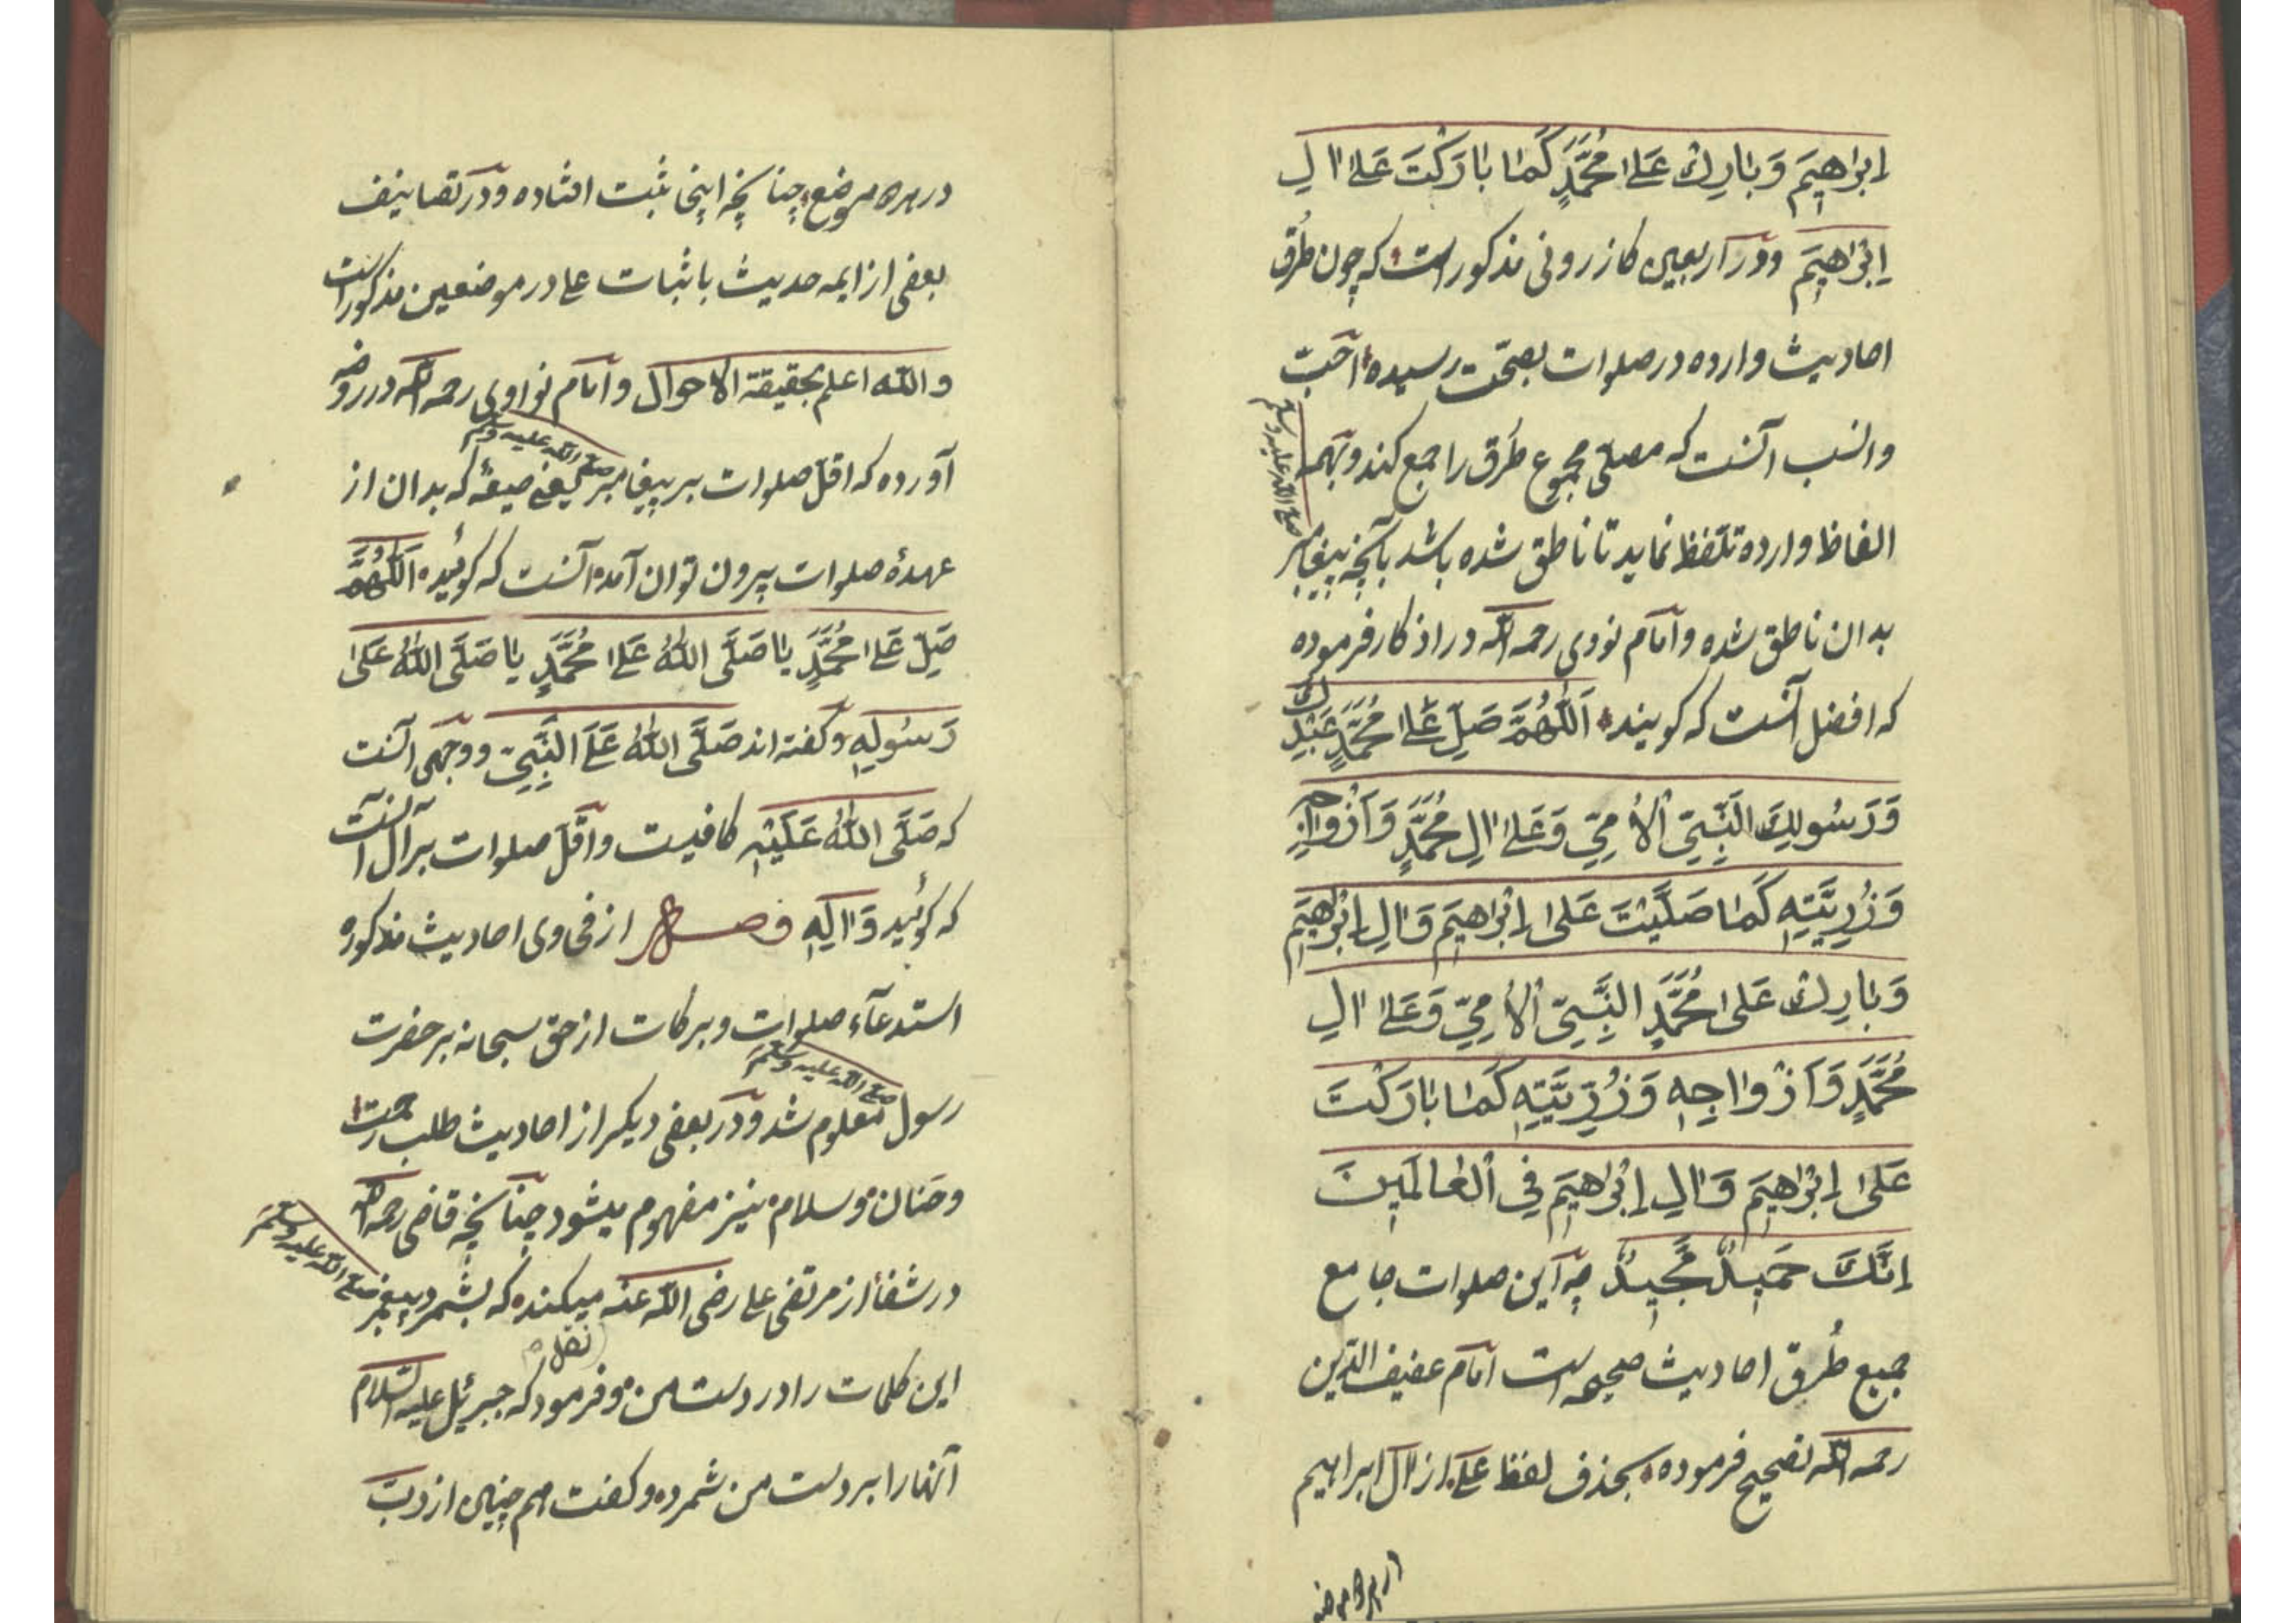 اِبْرَاهِيمَ وَبَارِكْ عَلَى مُحَمَّدٍ كَمَا بَارَكْتَ عَلَى اٰلِ
اِبْرَاهِيمَ ودر اربعين كازرونى مذكور است كه چون طُرُق
احاديث وارده در صلوات بصحّت رسيده احَبّ
وانسب آنست كه مصلّى مجموع طُرق را جمع كند وبهمه
الفاظ وارده تلفّظ نمايد تا ناطق شده باشد بآنچه پيغامبر
صلى الله عليه وسلم
بدان ناطق شده وامام نووى رحمه الله در اذكار فرموده
كه افضل آنست كه كويند اَللّٰهُمَّ صَلِّ عَلَى مُحَمَّدٍ عَبْدِكَ
وَرَسُولِكَ النَّبِيِّ الْاُمِّيِّ وَعَلَى اٰلِ مُحَمَّدٍ وَاَزْوَاجِهِ
وَذُرِّيَّتِهِ كَمَا صَلَّيْتَ عَلَى اِبْرَاهِيمَ وَاٰلِ اِبْرَاهِيمَ
وَبَارِكْ عَلَى مُحَمَّدٍ النَّبِيِّ الْاُمِّيِّ وَعَلَى اٰلِ
مُحَمَّدٍ وَاَزْوَاجِهِ وَذُرِّيَّتِهِ كَمَا بَارَكْتَ
عَلَى اِبْرَاهِيمَ وَاٰلِ اِبْرَاهِيمَ فِي الْعَالَمِينَ
اِنَّكَ حَمِيدٌ مَّجِيدٌ چه اين صلوات جامع
جميع طُرق احاديث صحيحه است امام عفيف الدّين
رحمه الله تصحيح فرموده بحذف لفظ على از اٰل ابراهيم
در هر دو موضع چنانچه اينجا ثبت افتاده ودر تصانيف
بعضى از ايمه حديث باثبات على در موضعين مذكور است
والله اعلم بحقيقة الاحوال وامام نواوى رحمه الله در روضه
آورده كه اقلّ صلوات بر پيغامبر صلى الله عليه وسلم يعنى صيغۀ كه بدان از
عهدۀ صلوات بيرون توان آمد آنست كه كوئيد اَللّٰهُمَّ
صَلِّ عَلَى مُحَمَّدٍ يا صَلَّى اللّٰهُ عَلَى مُحَمَّدٍ يا صَلَّى اللّٰهُ عَلَى
رَسُولِهِ وكفته اند صَلَّى اللّٰهُ عَلَى النَّبِيِّ ووجهى آنست
كه صَلَّى اللّٰهُ عَلَيْهِ كافيست واقلّ صلوات بر آل آنست
كه كوئيد وَاٰلِهِ فصل از فحوى احاديث مذكوره
استدعآء صلوات وبركات از حق سبحانه بر حضرت
رسول صلى الله عليه وسلم معلوم شد ودر بعضى ديكر از احاديث طلب رحمت
وحنان وسلام نيز مفهوم ميشود چنانچه قاضى رحمه الله
در شفا از مرتضى على رضى الله عنه نقل ميكند كه بشمرد پيغمبر صلى الله عليه وسلم
اين كلمات را در دست من وفرمود كه جبرئيل عليه السّلام
آنها را بر دست من شمرد وكفت هم چنين از ربّ